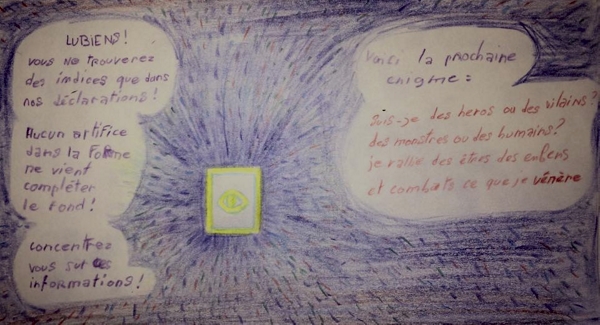 LUBIENS!
vous ne trouverez
des indices que dans
nos déclarations!
Aucun artifice
dans la forme
ne vient
compléter
le fond!
concentrez
vous sur ces
informations!
voici la prochaine
enigme:
Suis-je des heros ou des vilains?
des monstres ou des humains?
je rallie des êtres des enfers
et combats ce que je vénère